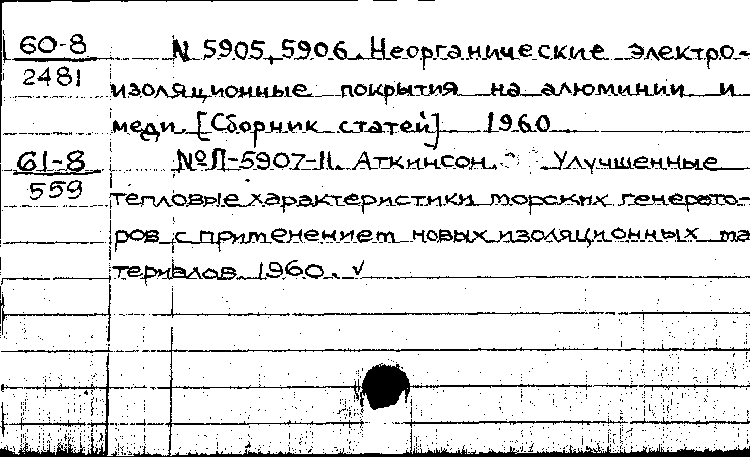 60-8 N 5905, 5906. Неорганические электро-
2481 изоляционные покрытия на алюминии и
меди. [Сборник статей] 1960
61-8 №П-5907-11. Аткинсон. Улучшенные
559 тепловые характеристики морских генерато-
ров с применением новых изоляционных ма
териалов. 1960. ✓